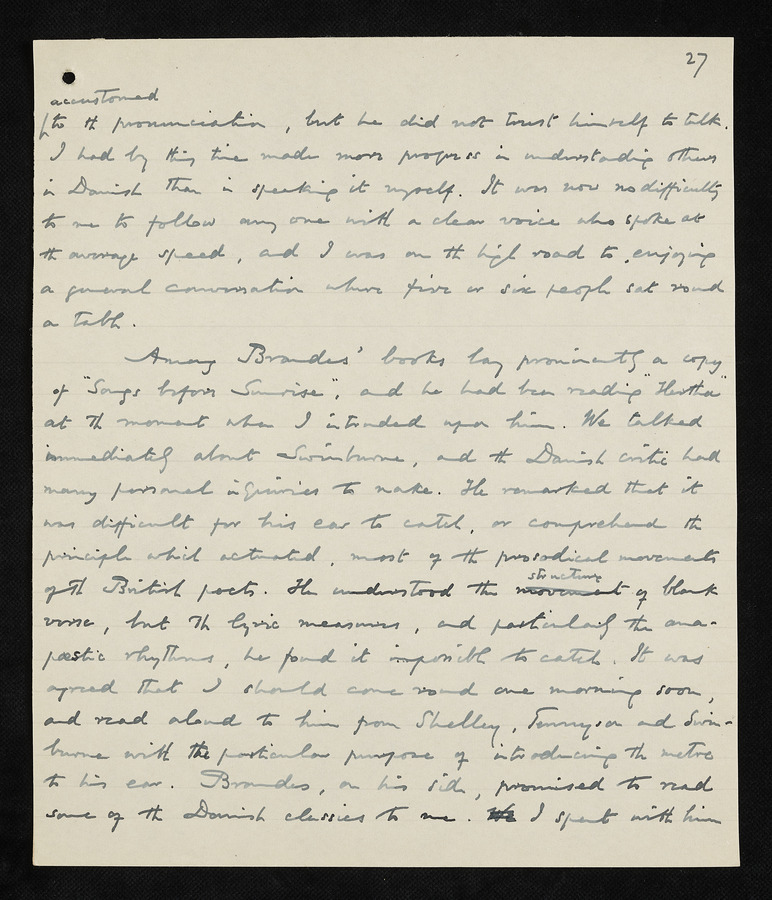 27
accustomed
to th pronunciation, but he did not trust himself to talk.
I had by this time made more progress in understanding others
in Danish than in speaking it myself. It was now no difficulty
to me to follow any one with a clear voice who spoke at
th average speed, and I was on th high road to enjoying
a general conversation where five or six people sat round
a table.
Among Brandes' books lay prominently a copy
of "Songs before Sunrise", and he had been reading "Hertha"
at th moment when I intruded upon him. We talked
immediately about Swinburne, and th Danish critic had
many personal inquiries to make. He remarked that it
was difficult for his ear to catch, or comprehend th
principle which actuated, most of th prosodical movements
of th British poets. He understood the movement structure of blank
verse, but th lyric measures, and particularly the ana-
pæstic rhythms, he found it impossible to catch. It was
agreed that I should come round one morning soon,
and read aloud to him from Shelley, Tennyson and Swin-
burne with the particular purpose of introducing th metre
to his ear. Brandes, on his side, promised to read
some of th Danish classics to me. We I spent with him